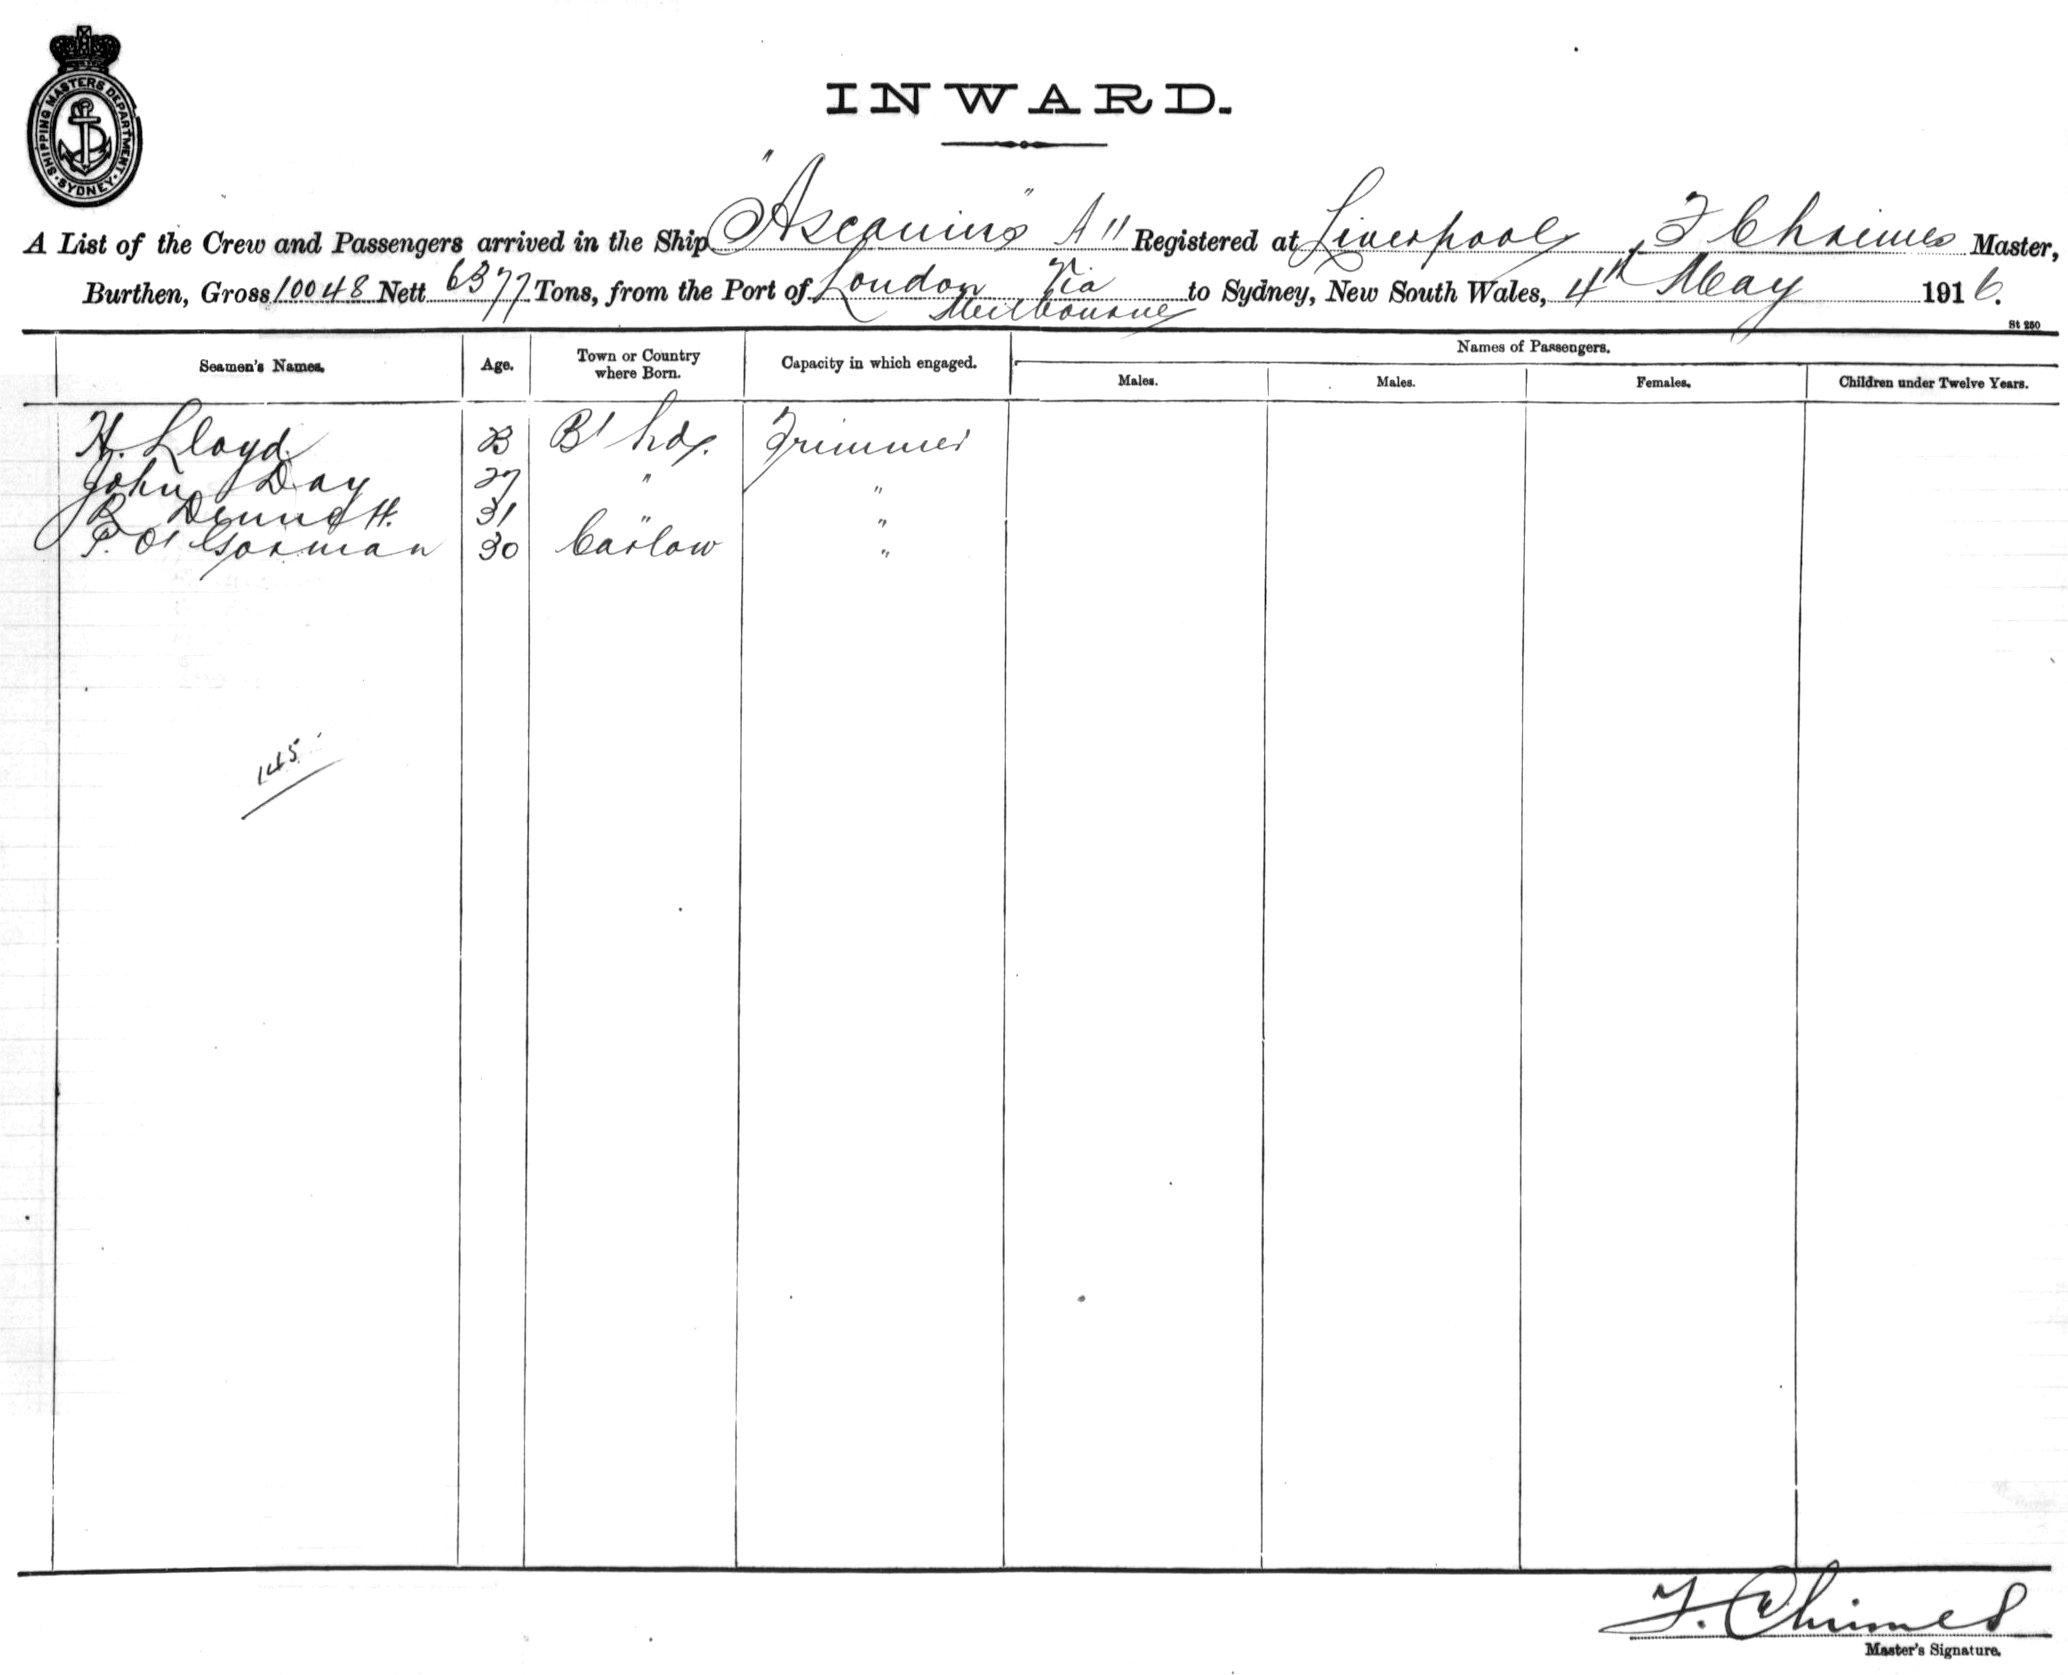 SHIPPING MASTERS DEPARTMENT · SYDNEY ·
INWARD.
A List of the Crew and Passengers arrived in the Ship "Ascanius" A11 Registered at Liverpool, F Chrimes Master,
Burthen, Gross 10048 Nett 6377 Tons, from the Port of London Via Melbourne to Sydney, New South Wales, 4th May 1916.
St 250
Seamen's Names. Age. Town or Country where Born. Capacity in which engaged. Names of Passengers.
Males. Males. Females. Children under Twelve Years.
H. Lloyd B' hd. Trimmer
John Day 27 " "
R Dennett. 31 " "
P. O'Gorman 30 Carlow "
145
F. Chrimes
Master's Signature.